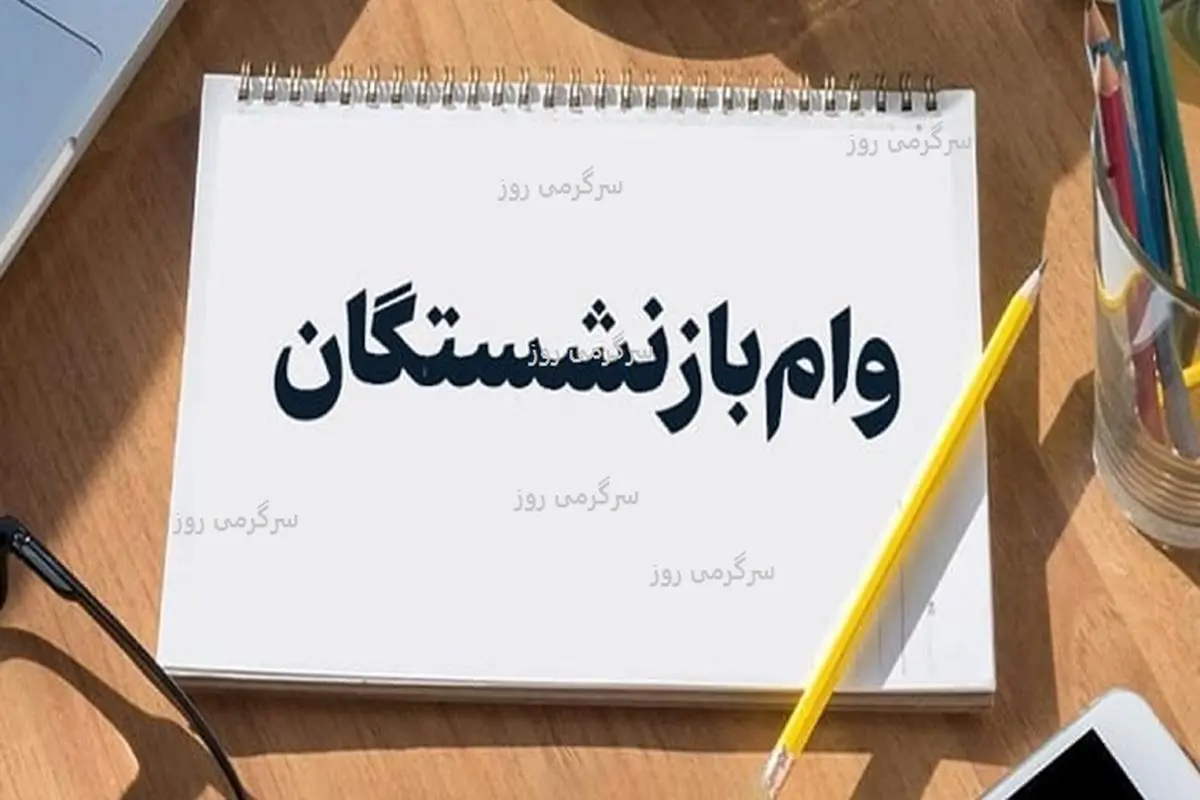 سرگرمی روز
سرگرمی روز
وام بازنشستگان
سرگرمی روز
سرگرمی روز
سرگرمی روز
سرگرمی روز